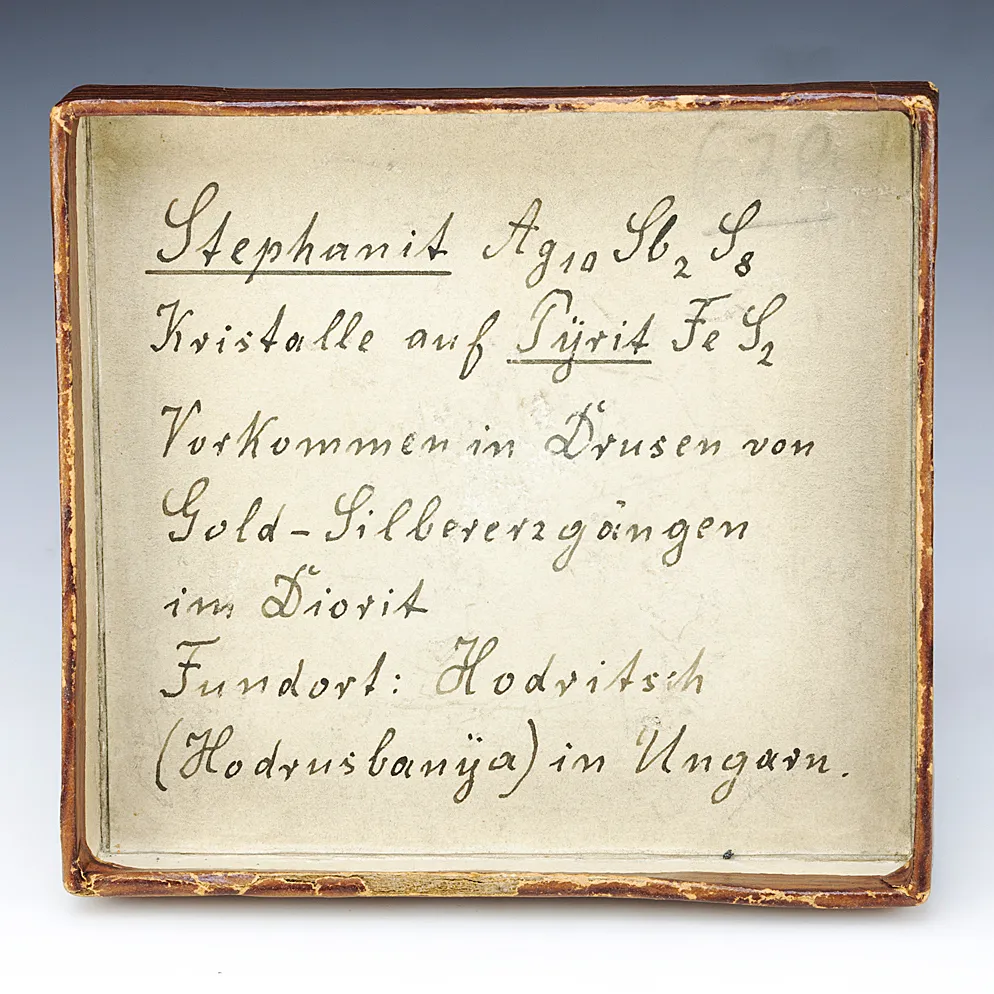 Stephanit Ag₁₀ Sb₂ S₈
Kristalle auf Pÿrit Fe S₂
Vorkommen in Drusen von
Gold-Silbererzgängen
im Diorit
Fundort: Hodritsch
(Hodrusbanÿa) in Ungarn.